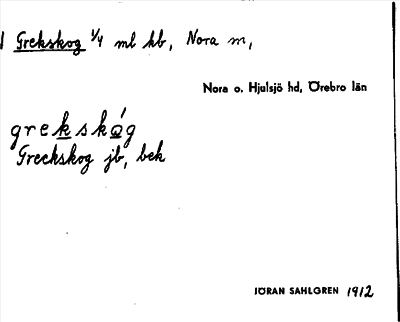 Grekskog 1/4 ml kb, Nora m,
Nora o. Hjulsjö hd, Örebro län
grekskóg
Greckskog jb, bek
JÖRAN SAHLGREN 1912